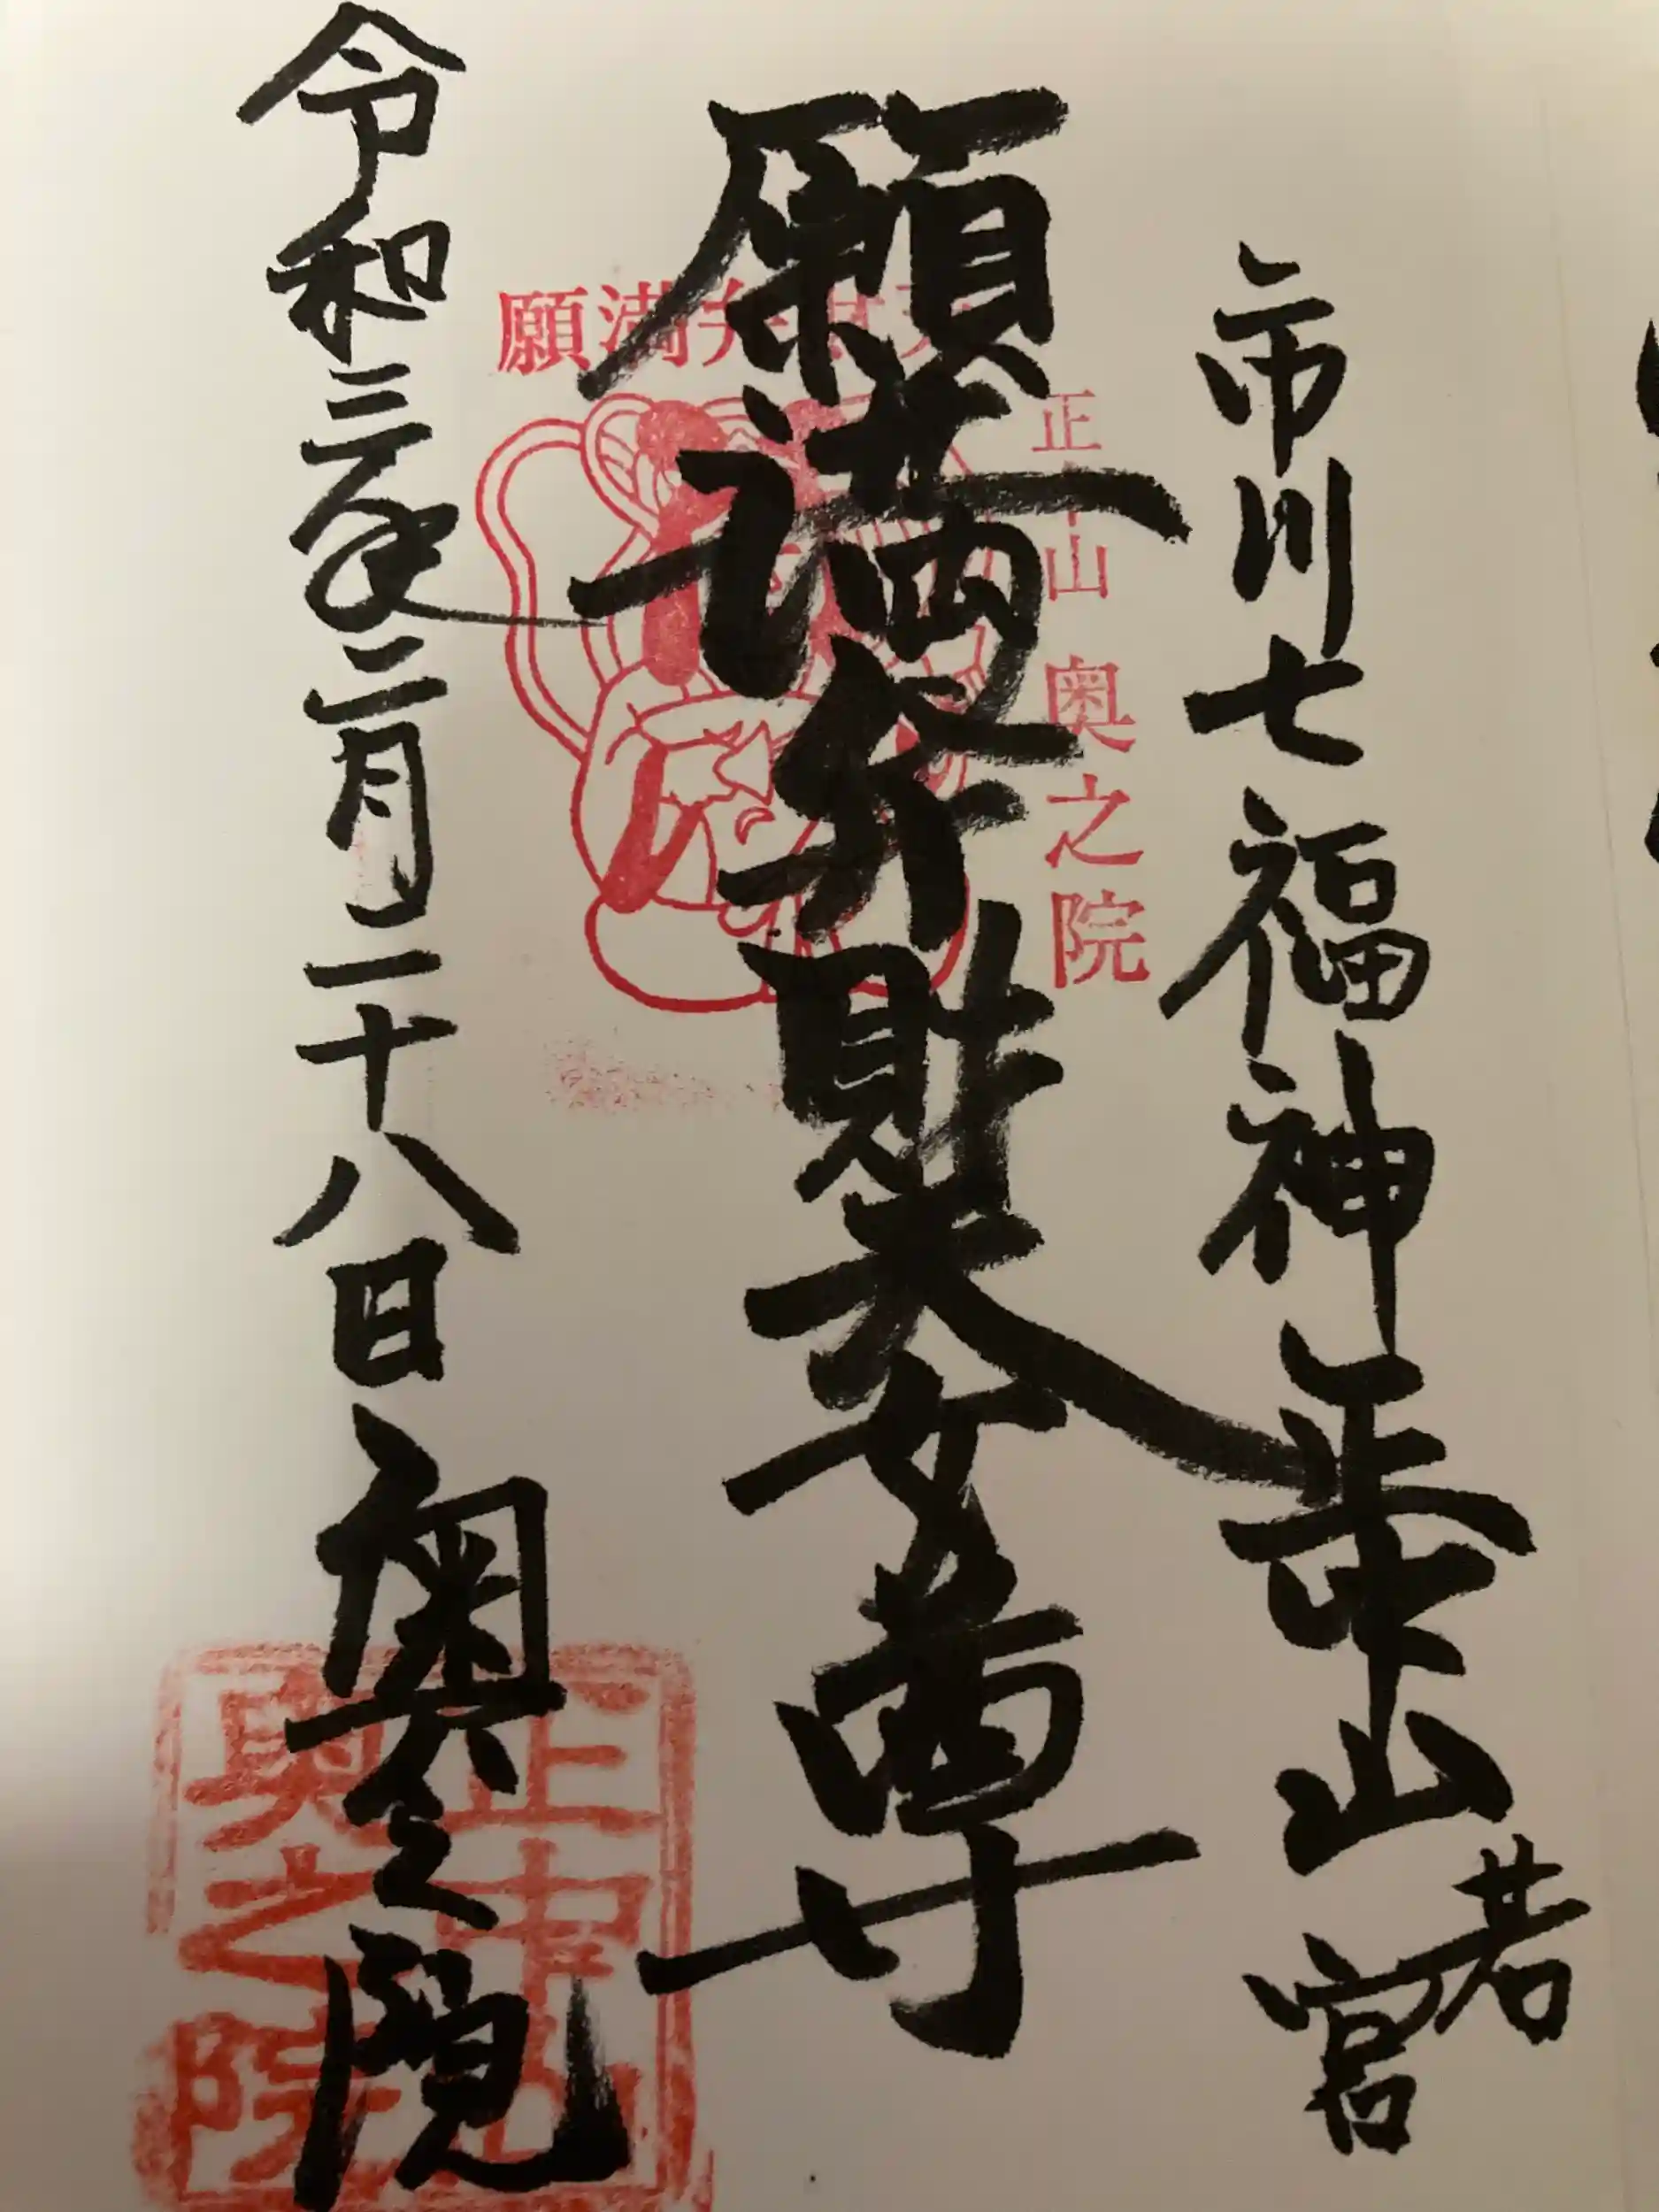 市川七福神 正中山 若宮
願満弁財天女尊
令和三年二月二十八日 奥之院
願満弁財天
正中山 奥之院
正中山
奥之院